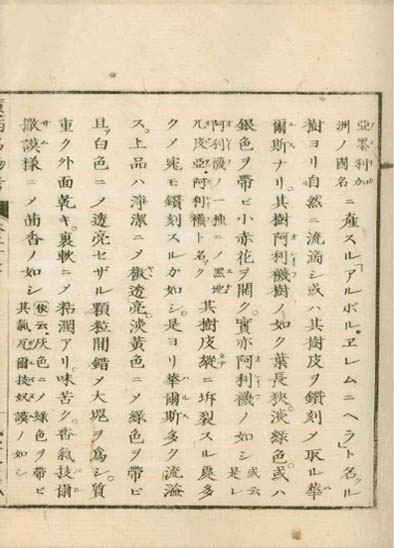 亞墨利加
洲ノ國名ニ産スル「アルボル、ヱレムニヘラ」ト名クル
樹ヨリ自然ニ流滴シ或ハ其樹皮ヲ鑚刻メ取ル華
爾斯ナリ。其樹阿利襪樹ノ如ク葉長狹淡緑色或ハ
銀色ヲ帶ビ小赤花ヲ開ク。實亦阿利襪ノ如シ 或云是レ
阿利襪ノ一種ニノ黒地
兀皮亞、阿利襪ト名ク 其樹皮縱ニ坼裂スル處多
クノ宛モ鑚刻スルカ如シ。是ヨリ華爾斯多ク流溢
ス。上品ハ淨潔ニメ微透亮。淡黄色ニメ緑色ヲ帶ビ
且ツ白色ニメ透亮セザル顆粒間錯メ大塊ヲ爲シ。質
重ク外面乾キ。裏軟ニメ粘潤アリ。味苦ク。香氣
撒謨様ニメ茴香ノ如シ 云灰色ニメ緑色ヲ帶ビ
其氣兀爾 奴謨ノ如シ